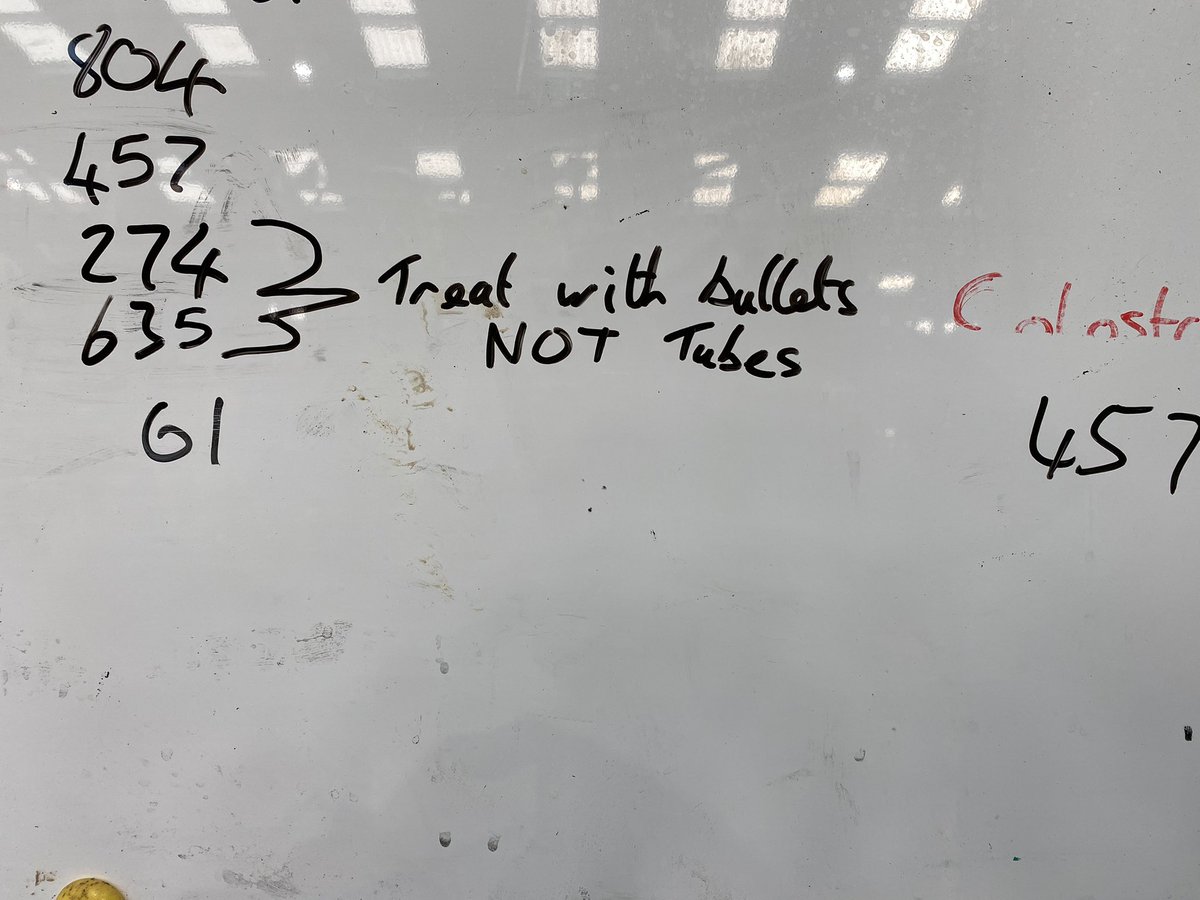 804
457
274
635
Treat with bullets
NOT Tubes
61
457